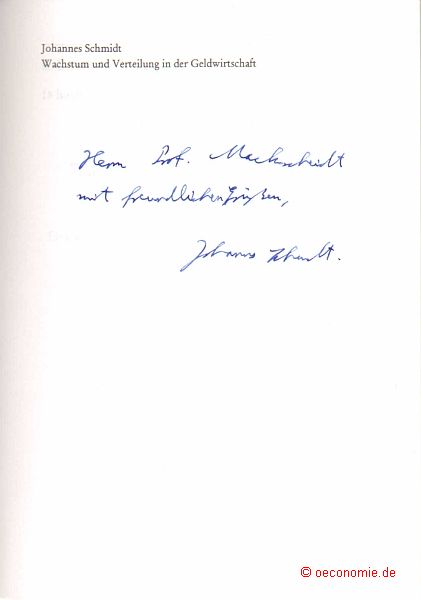 Johannes Schmidt
Wachstum und Verteilung in der Geldwirtschaft
Herrn Prof. Mackscheidt
mit freundlichen Grüßen,
Johannes Schmidt.
© oeconomie.de